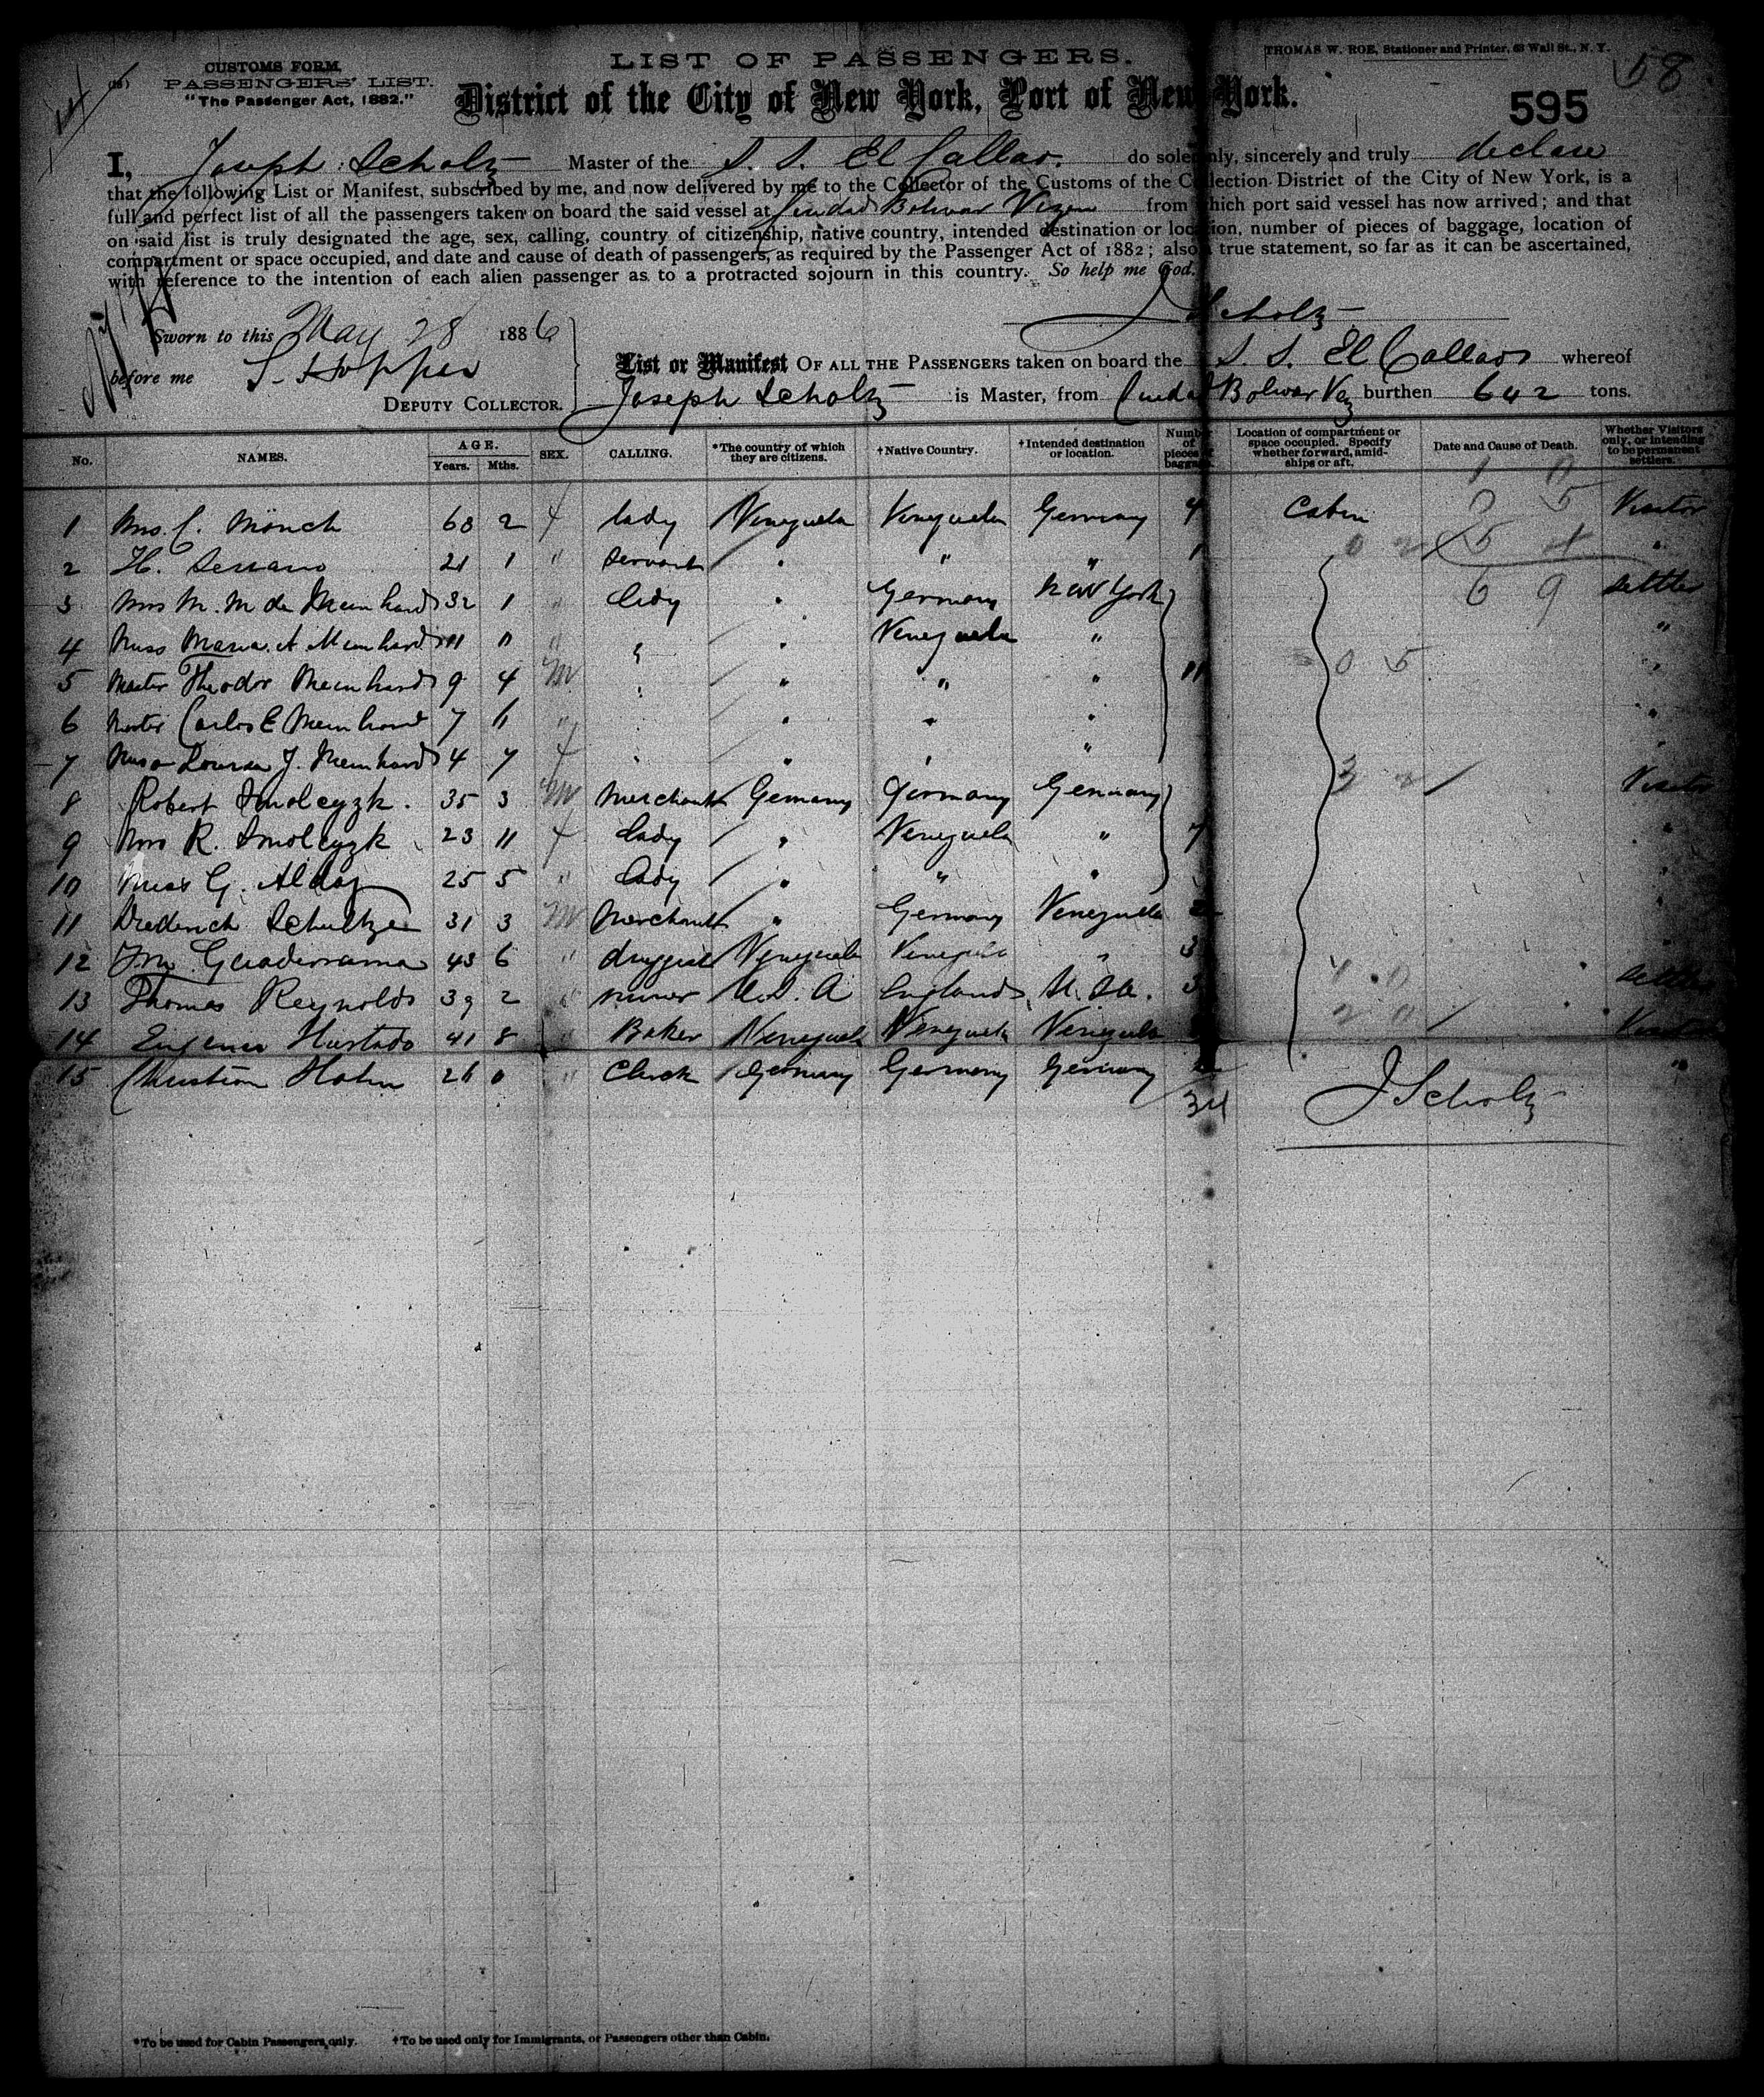 CUSTOMS FORM.
PASSENGERS' LIST.
"The Passenger Act, 1882."
LIST OF PASSENGERS.
THOMAS W. ROE, Stationer and Printer, 63 Wall St., N. Y.
58
District of the City of New York, Port of New York.
595
I, Joseph Scholtz Master of the S. S. El Callao. do solemnly, sincerely and truly declare
that the following List or Manifest, subscribed by me, and now delivered by me to the Collector of the Customs of the Collection District of the City of New York, is a
full and perfect list of all the passengers taken on board the said vessel at Ciudad Bolivar from which port said vessel has now arrived; and that
on said list is truly designated the age, sex, calling, country of citizenship, native country, intended destination or location, number of pieces of baggage, location of
compartment or space occupied, and date and cause of death of passengers, as required by the Passenger Act of 1882; also a true statement, so far as it can be ascertained,
with reference to the intention of each alien passenger as to a protracted sojourn in this country. So help me God.
J Scholtz
Sworn to this May 28 1886
before me S. Hoppes
DEPUTY COLLECTOR.
List or Manifest OF ALL THE PASSENGERS taken on board the S. S. El Callao whereof
Joseph Scholtz is Master, from Ciudad Bolivar Vez burthen 642 tons.
No. NAMES. AGE. Years. Mths. SEX. CALLING. *The country of which they are citizens. †Native Country. †Intended destination or location. Number of pieces of baggage. Location of compartment or space occupied. Specify whether forward, amidships or aft. Date and Cause of Death. Whether Visitors only, or intending to be permanent settlers.
1 Mrs. C. Mönch 60 2 f lady Venezuela Venezuela Germany 4 Cabin Visitor
2 H. Serrano 21 1 " Servant " " " 1 "
3 Mrs M. M de Meinhard 32 1 " lady " Germany New York settler
4 Miss Maria A Meinhard 11 0 " " " Venezuela " "
5 Master Theodor Meinhard 9 4 M " " " " 11 "
6 Master Carlos E Meinhard 7 " " " " " "
7 Miss Louisa J. Meinhard 4 7 f " " " " "
8 Robert Smolcyzk. 35 3 M Merchant Germany Germany Germany Visitor
9 Mrs R. Smolcyzk 23 11 f lady " Venezuela " 7 "
10 Miss G. Aldag 25 5 " lady " " " "
11 Diederich Schultze 31 3 M Merchant " Germany Venezuela 2 "
12 Guaderrama 43 6 " druggist Venezuela Venezuela " 3 "
13 Thomas Reynolds 39 2 " miner U.S.A England U.S.A. 3 settler
14 Hurtado 41 8 " Baker Venezuela Venezuela Venezuela Visitor
15 Christian Hahn 26 0 " Clerk Germany Germany Germany "
34
J Scholtz
*To be used for Cabin Passengers only. †To be used only for Immigrants, or Passengers other than Cabin.